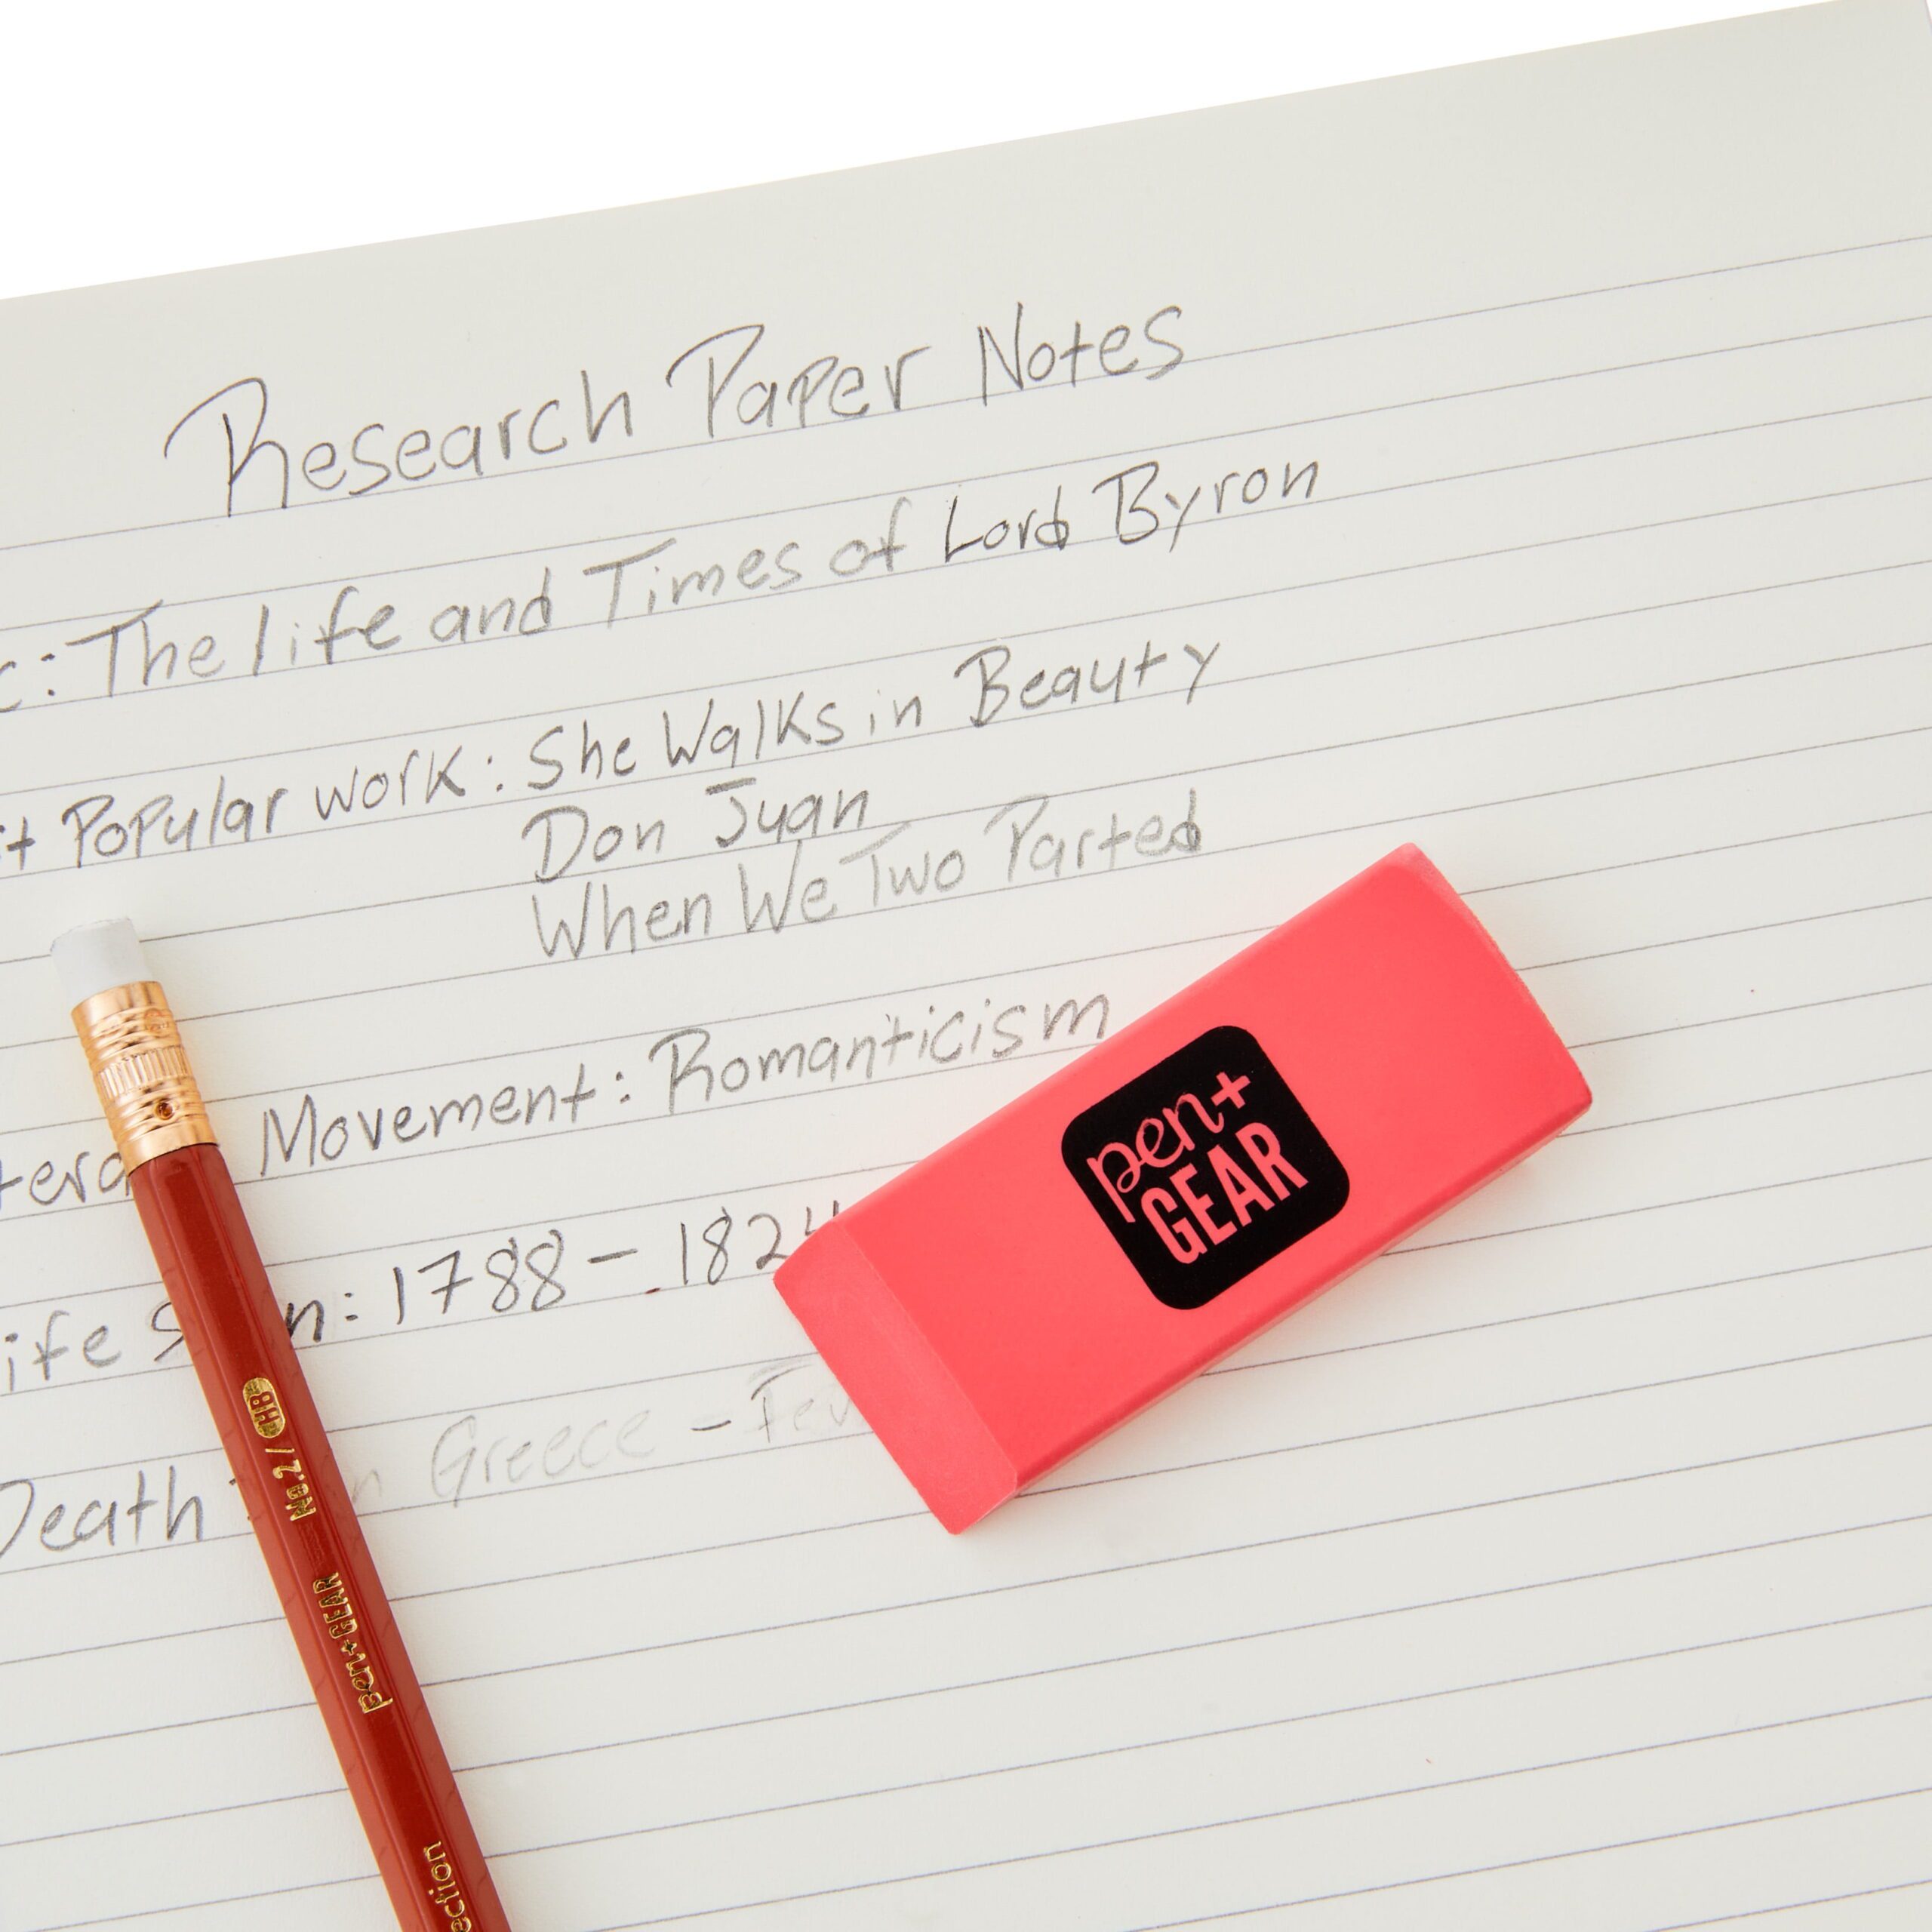 Research Paper Notes
c: The life and Times of Lord Byron
t Popular work: She Walks in Beauty
Don Juan
When We Two Parted
Movement: Romanticism
ife n: 1788 - 1824
Death Greece - Fev
pen+
GEAR
No.2 / HB
pen+GEAR
ection